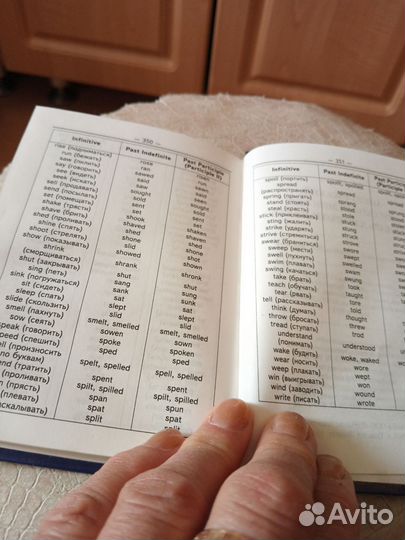 — 350 —
Infinitive Past Indefinite Past Participle
(Participle II)
rise (подниматься) rose risen
run (бежать) ran run
saw (пилить) sawed sawn
say (говорить) said said
see (видеть) saw seen
seek (искать) sought sought
sell (продавать) sold sold
send (посылать) sent sent
set (помещать) set set
shake (трясти) shook shaken
shave (брить) shaved shaven
shed (проливать) shed shed
shine (сиять) shone shone
shoot (стрелять) shot shot
show (показывать) showed shown
shrink
(сморщиваться) shrank shrunk
shut (закрывать) shut shut
sing (петь) sang sung
sink (погружаться) sank sunk
sit (сидеть) sat sat
sleep (спать) slept slept
slide (скользить) slid slid
smell (пахнуть) smelt, smelled smelt, smelled
sow (сеять) sowen
speak (говорить) spoke spoken
speed (спешить) sped sped
ell (произносить spelt, spelled spelt, spelled
по буквам)
end (тратить) spent spent
ill (проливать) spilt, spilled spilt, spilled
in (прясть) span spun
(плевать) spat spat
аскалывать) split split
— 351 —
Infinitive Past Indefinite Past
(Participle
spoil (портить) spoilt, spoiled
spread
(распространять) spread
spring (прыгать) sprang
stand (стоять) stood
steal (красть) stole
stick (приклеивать) stuck
sting (жалить) stung
strike (ударять) struck
strive (стремиться) strove
swear (браниться) swore
sweep (мести) swept
swell (пухнуть)
swim (плавать) swam
swing (качаться) swang
take (брать) took
teach (обучать) taught
tear (рвать) tore
tell (рассказывать) told
think (думать) thought
throw (бросать) threw
tread (ступать) trod
understand
(понимать) understood
wake (будить) woke, waked
wear (носить) wore
weep (плакать) wept
win (выигрывать) won
wind (заводить) wound
write (писать) wrote
Avito